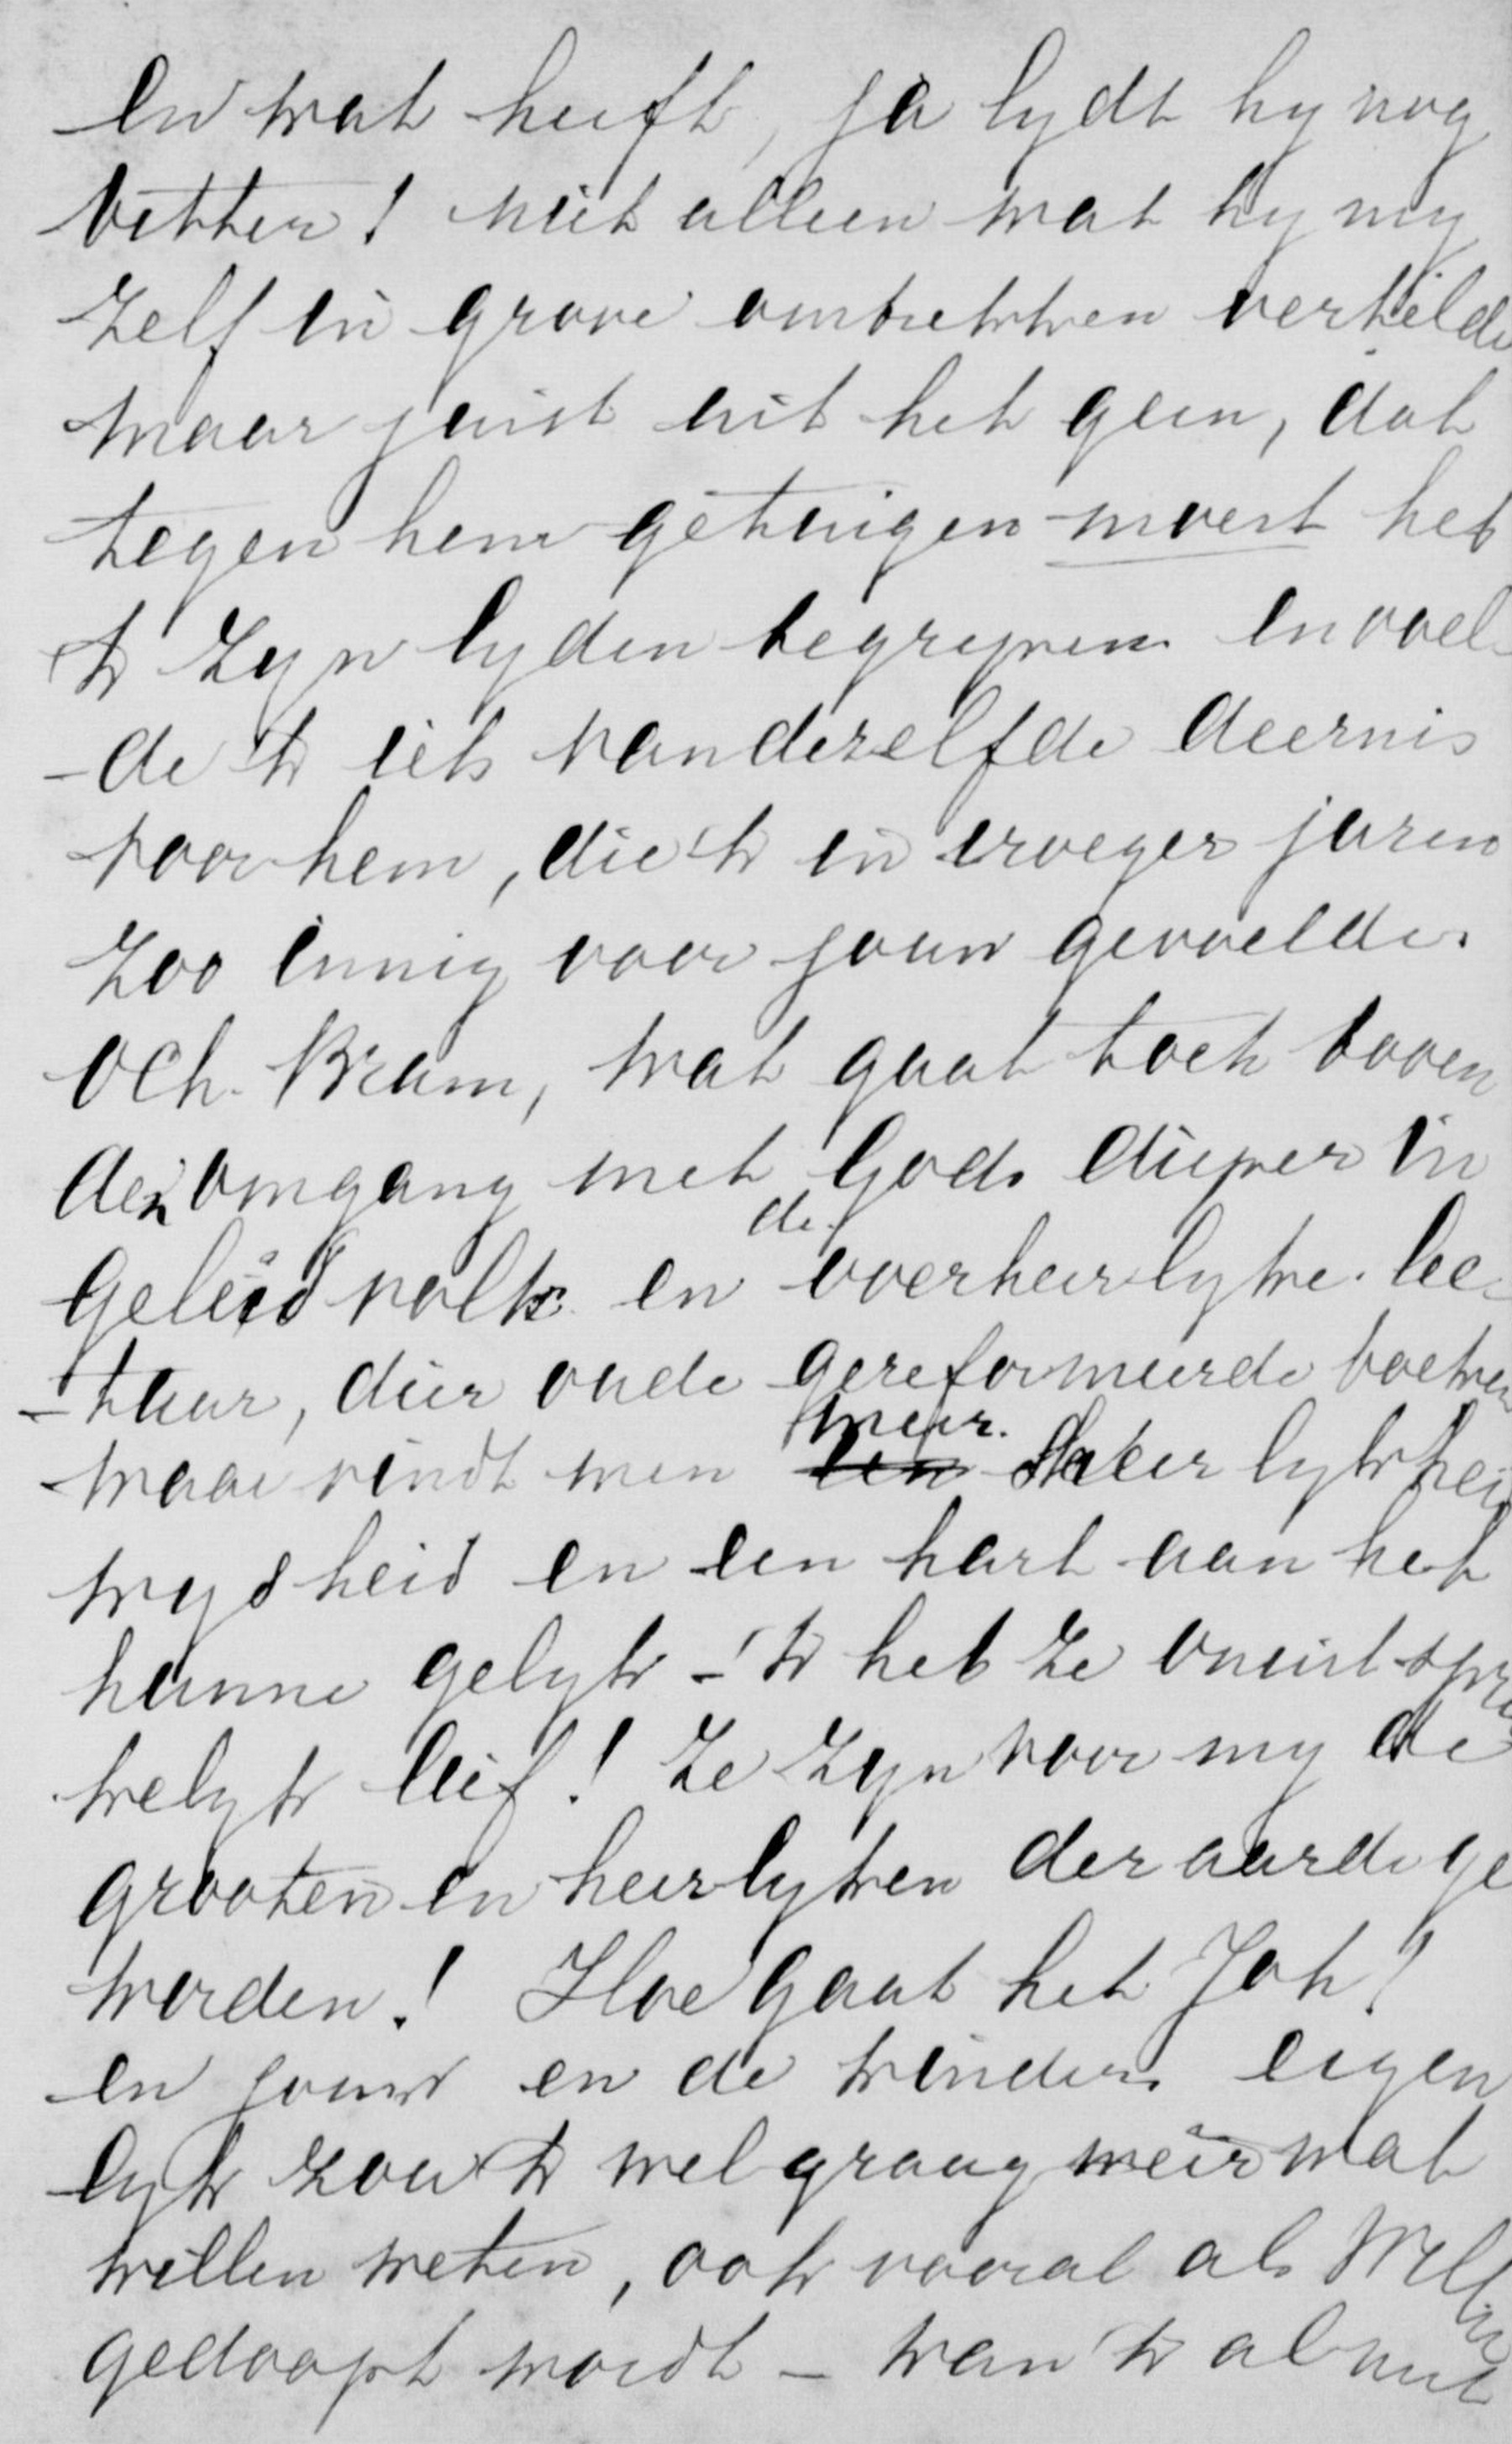 en wat heeft, ja lydt hy nog
bitter! niet alleen wat hy my
zelf in grove omtrekken vertelde
maar juist uit het geen, dat
tegen hem getuigen moest heb
'k zyn lyden begrepen en voel-
-de 'k iets van dezelfde deernis
voor hem, die 'k in vroeger jaren
zoo innig voor jouw gevoelde.
och Bram, wat gaat toch boven
den omgang met Gods dieper in
geleid volk en de overheerlyke lec-
-tuur, dier oude gereformeerde boeken
waar vindt men meer. degelykheid
wysheid en een hart aan het
hunne gelyk - 'k heb ze onuitspre
kelyk lief! Ze zyn voor my de
grooten en heerlyken der aarde ge
worden! Hoe gaat het Joh?
en jouw en de kinders eigen
lyk zou 'k wel graag meer wat
willen weten, ook vooral als
gedoopt wordt - kan 'k al niet